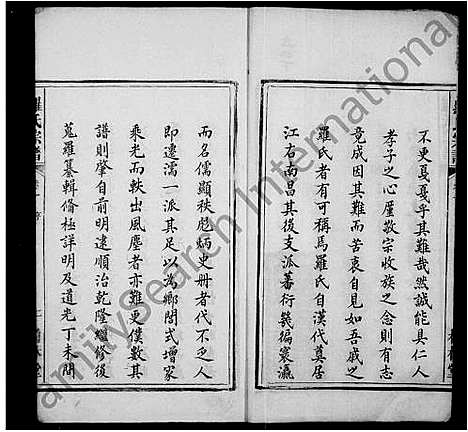 不更戛戛乎其難哉然誠能具仁人
孝子之心屢敦宗收族之念則有志
竟成因其難而苦衷自見如吾戚之
羅氏者有可稱焉羅氏自漢代奠居
江右南昌其後支派蕃衍幾徧寰瀛
羅氏宗譜
而名儒顯秩彪炳史冊者代不乏人
即遷濡一派其足以為鄉閭式增家
乘光而軼出風塵者亦難更僕數其
譜則肇自前明遠順治乾隆繼修後
蒐羅纂輯脩極詳明及道光丁未間
FamilySearch International